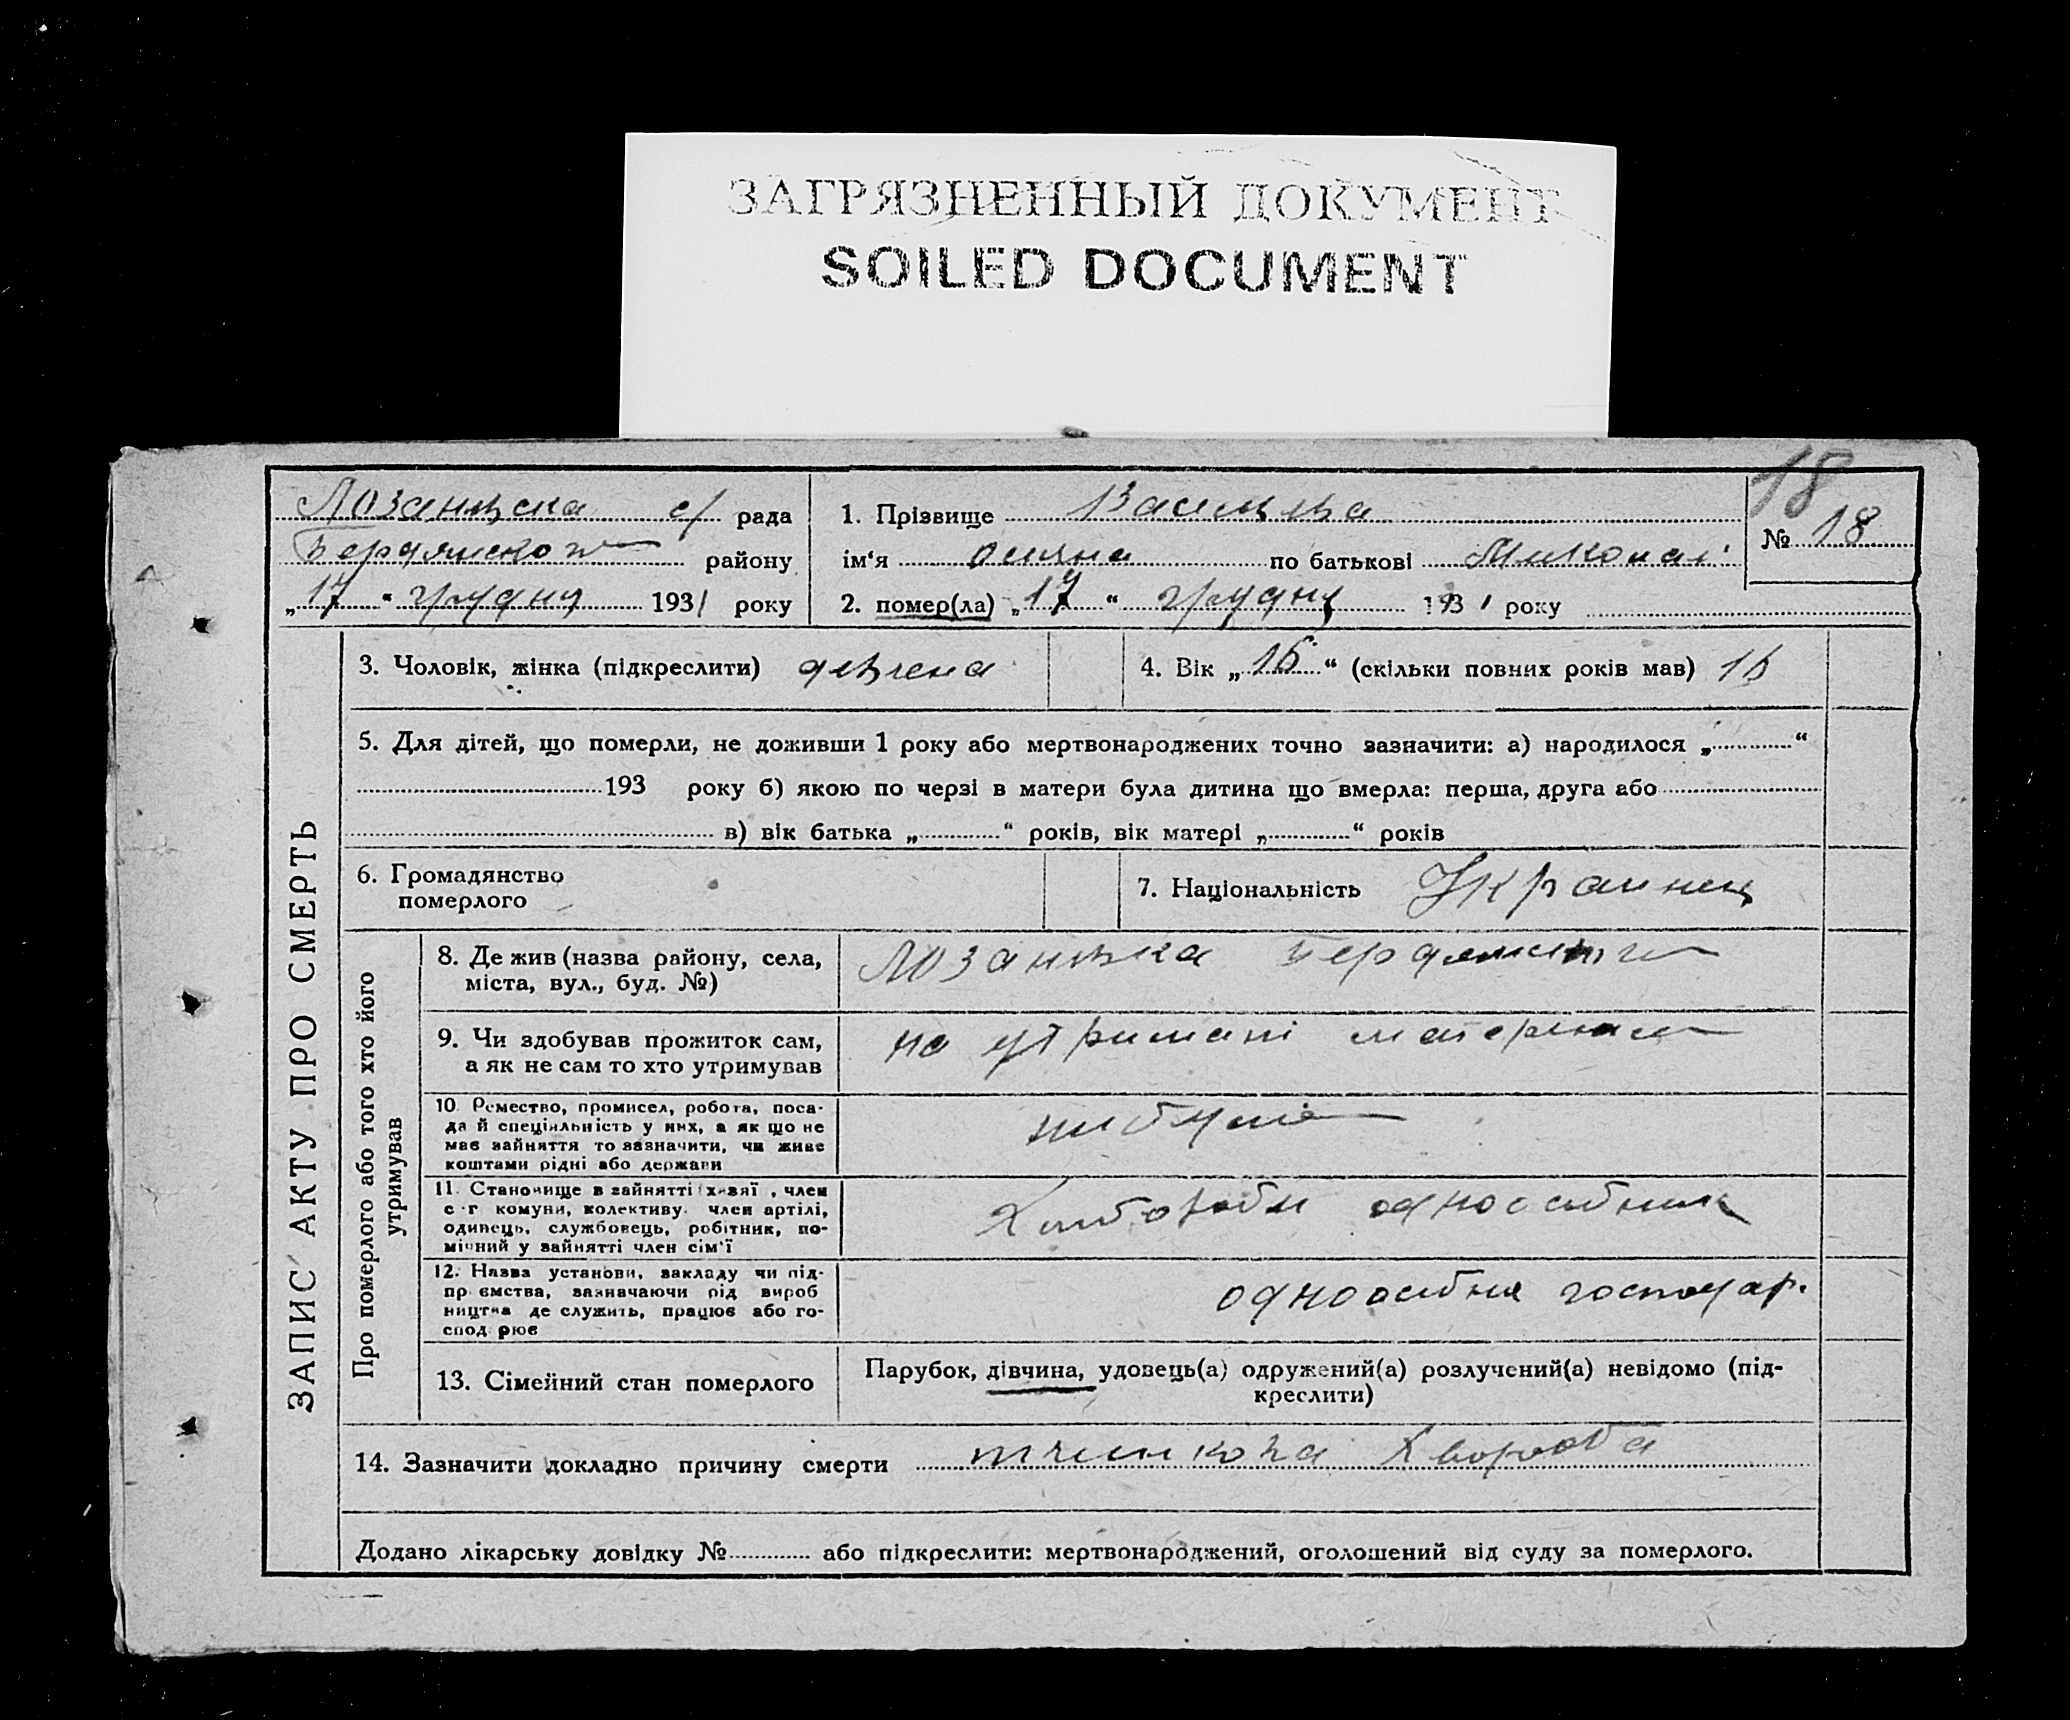 ЗАГРЯЗНЕННЫЙ ДОКУМЕНТ
SOILED DOCUMENT
18
Лозанівська с/ рада
Бердянского району
„17“ грудня 1931 року
1. Прізвище
ім‘я по батькові Миколай
№ 18
2. помер(ла) „17“ грудня 1931 року
ЗАПИС АКТУ ПРО СМЕРТЬ
3. Чоловік, жінка (підкреслити) дівчена
4. Вік „16“ (скільки повних років мав) 16
5. Для дітей, що померли, не доживши 1 року або мертвонароджених точно зазначити: а) народилося „ “
193 року б) якою по черзі в матери була дитина що вмерла: перша, друга або
в) вік батька „ “ років, вік матері „ “ років
6. Громадянство
померлого
7. Національність Украинец
Про померлого або того хто його
утримував
8. Де жив (назва району, села,
міста, вул., буд. №)
Лозанівка
9. Чи здобував прожиток сам,
а як не сам то хто утримував
на утримані
10. Ремество, промисел, робота, поса-
да й спеціяльність у них, а як що не
має зайняття то зазначити, чи живе
коштами рідні або держави
11. Становище в зайнятті хазяї , член
с-г комуни, колективу член артілі,
одинець, службовець, робітник, по-
мічний у зайнятті член сім‘ї
Хлібороби одноосібник
12. Назва установи, закладу чи під-
пр ємства, зазначаючи рід вироб
ництва де служить, працює або го-
спод рює
одноосібня господар.
13. Сімейний стан померлого
Парубок, дівчина, удовець(а) одружений(а) розлучений(а) невідомо (під-
креслити)
14. Зазначити докладно причину смерти хвороба
Додано лікарську довідку № або підкреслити: мертвонароджений, оголошений від суду за померлого.